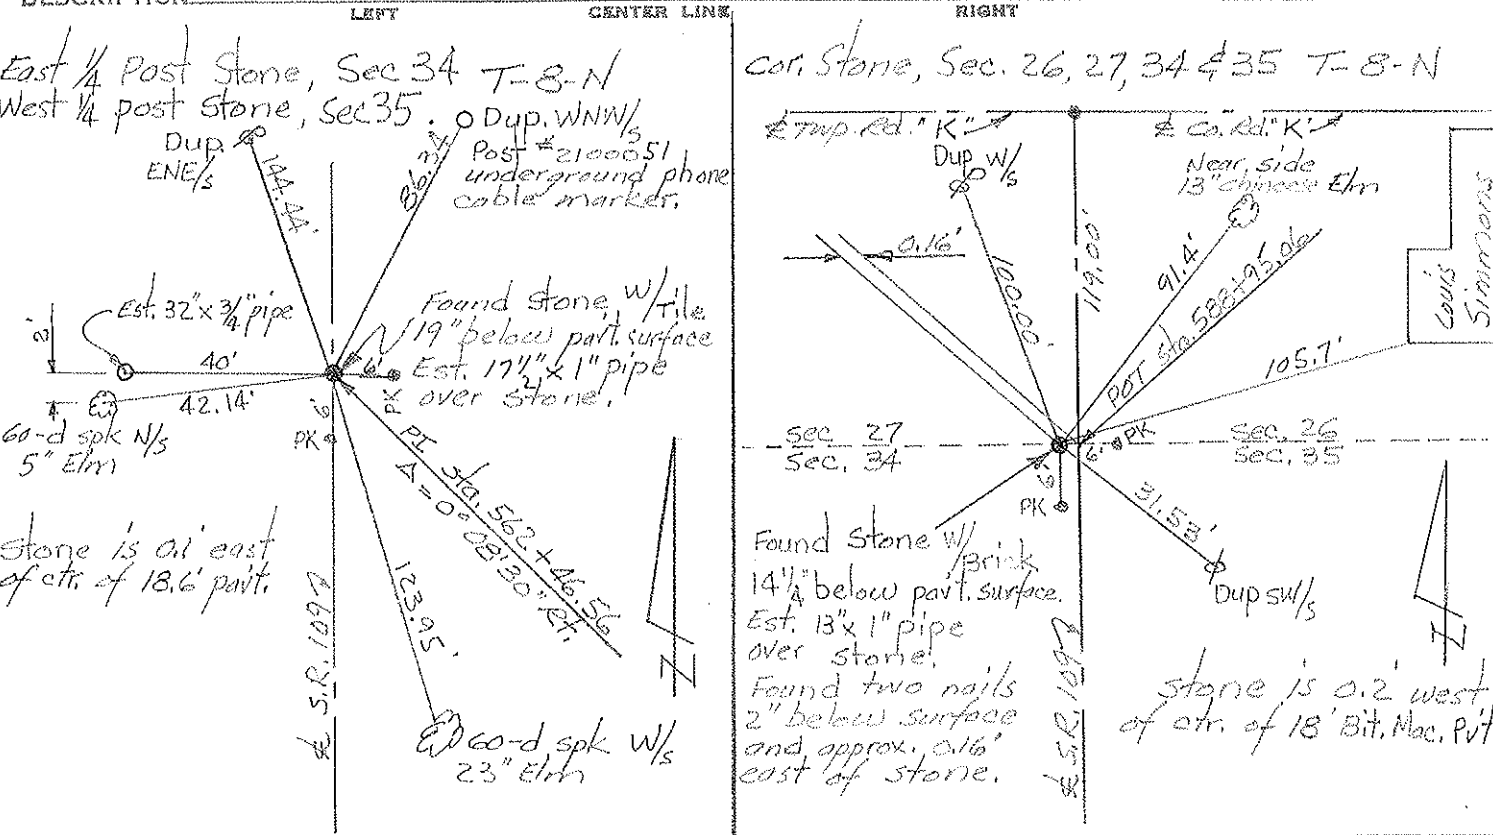 LEFT
CENTER LINE
RIGHT
East 1/4 Post Stone, Sec 34 T-8-N
West 1/4 post stone, Sec 35.
Dup.
ENE/s
144.44'
86.34
Dup. WNW/s
Post #2100051
underground phone
cable marker.
2'
Est. 32" x 3/4" pipe
40'
42.14'
4'
60-d spk N/s
5" Elm
Found stone W/Tile
19" below pavt. surface
Est. 17 1/2" x 1" pipe
over stone.
6'
PK
6'
PK
PI sta. 562+46.56
Δ = 0° 08' 30" Rt.
Stone is 0.1' east
of ctr. of 18.6' pavt.
123.95'
℄ S.R. 109
60-d spk W/s
23" Elm
N
Cor. Stone, Sec. 26, 27, 34 & 35 T-8-N
℄ Twp. Rd. "K"
℄ Co. Rd. "K"
Dup W/s
Near side
13" chinese Elm
0.16'
100.00'
119.00'
91.4'
POT Sta. 588+95.06
105.7'
Louis
Simmons
Sec 27
Sec. 34
Sec. 26
Sec. 35
6'
PK
6'
PK
31.53'
Dup SW/s
Found Stone W/Brick
14 1/4" below pavt. surface.
Est. 13" x 1" pipe
over stone.
Found two nails
2" below surface
and approx. 0.16'
east of stone.
℄ S.R. 109
stone is 0.2' west
of ctr. of 18' Bit. Mac. Pvt
N